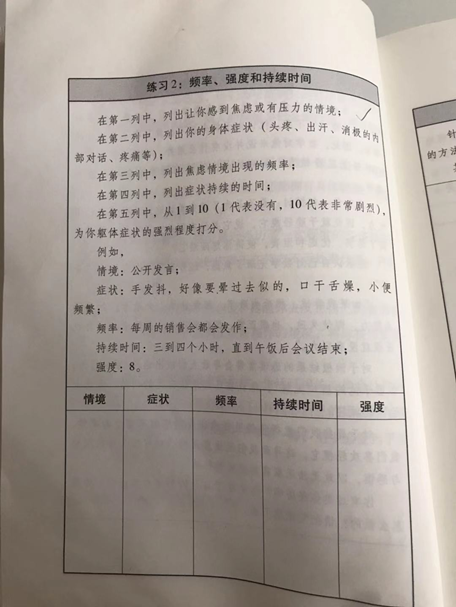 练习2：频率、强度和持续时间
在第一列中，列出让你感到焦虑或有压力的情境；
在第二列中，列出你的身体症状（头疼、出汗、消极的内
部对话、疼痛等）；
在第三列中，列出焦虑情境出现的频率；
在第四列中，列出症状持续的时间；
在第五列中，从1到10（1代表没有，10代表非常剧烈），
为你躯体症状的强烈程度打分。
例如，
情境：公开发言；
症状：手发抖，好像要晕过去似的，口干舌燥，小便
频繁；
频率：每周的销售会都会发作；
持续时间：三到四个小时，直到午饭后会议结束；
强度：8。
情境 症状 频率 持续时间 强度
针
的方法